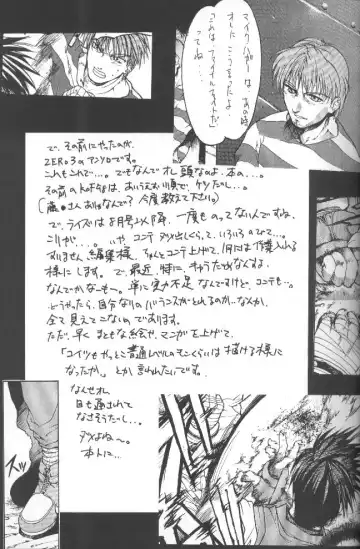 マイク・ハガーは、あの時
オレにこう言ったよ
「これは、ファイナルファイトだ」
ってね…
で、その前にやったのが、
ZERO3のアンソロです。
これもこれで…。でもなんでオレ頭なのよ、本の…。
その前のKOF98は、あいうえお順で、ケツだし…。
で、ライズは8月号以降、一度ものってないんですね
こりが…。いや、コンテ ダメ出しくらって、いろいろのびて…。
すいません編集様、ちゃんとコンテ上げて、1月には作業入れる
様にします。で、最近、特に、キャラ
なんでかなーも〜。単に実力不足なんですけど、コンテも…。
どうやったら、自分なりのバランスがとれるのか…なんか、
全て見えてこないのであります。
ただ、早く まともな絵や、マンガを上げて、
「コイツもやっとこ普通レベルのモンくらいは描ける様に
なったか。」とか言われたいです。
なんせオレ
目も通されて
なさそうだーし…。
ダメよね〜。
本トに…
ズッ